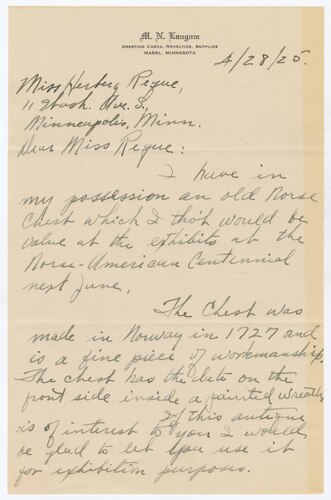 M. N. Langum
GREETING CARDS, NOVELTIES, SUPPLIES
MABEL, MINNESOTA
4/28/25.
Miss Herborg Reque,
Ave. S.,
Minneapolis, Minn.
Dear Miss Reque:
I have in
my possession an old Norse
Chest which I tho't would be
value at the exhibits at the
Norse-American Centennial
next June.
The Chest was
made in Norway in 1727 and
is a fine piece of workmanship.
The chest has the date on the
front side inside a painted wreath.
If this antique
is of interest to you I would
be glad to let you use it
for exhibition purposes.